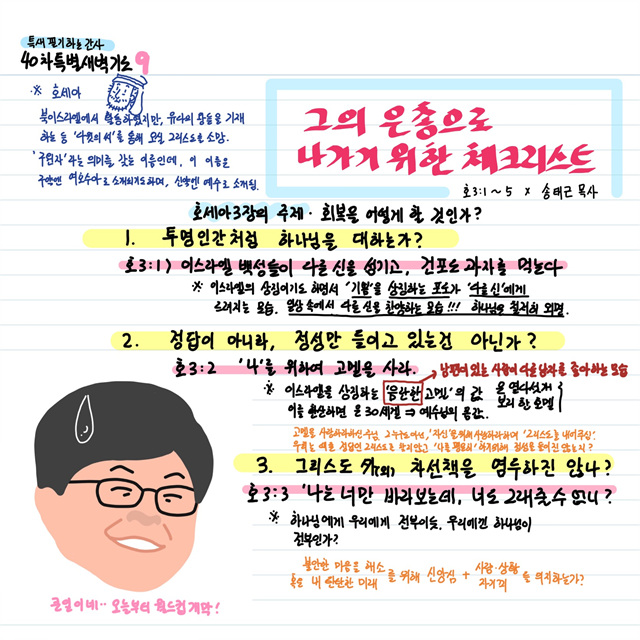 특새 필기하는 간사
40차특별새벽기도 9
※ 호세아
북이스라엘에서 활동하였지만, 유다의 왕들을 기재
하는 등 '다윗의 씨'를 통해 오실 그리스도를 소망.
'구원자'라는 의미를 갖는 이름인데, 이 이름은
구약엔 여호수아로 소개되기도하며, 신약엔 예수로 소개됨.
그의 은총으로
나가기 위한 체크리스트
호3:1~5 × 송태근 목사
호세아3장의 주제 · 회복을 어떻게 할 것인가?
1. 투명인간처럼 하나님을 대하는가?
호3:1) 이스라엘 백성들이 다른 신을 섬기고, 건포도 과자를 먹는다
※ 이스라엘의 상징이기도 하면서 '기쁨'을 상징하는 포도가 '다른 신'에게
드려지는 모습. 일상 속에서 다른 신을 찬양하는 모습!!! 하나님은 철저히 외면.
2. 정답이 아니라, 정성만 들이고 있는건 아닌가?
호3:2 '나'를 위하여 고멜을 사라.
→ 남편이 있는 사람이 다른 남자를 좋아하는 모습
※ 이스라엘을 상징하는 '음란한 고멜'의 값 은 열다섯개
보리 한 호멜
이를 환산하면 은 30세겔 ⇒ 예수님의 몸값.
고멜을 사랑하라하신 주님. 그 누구도 아닌, '자신'을 위해 사랑하라하며 '그리스도를 내어주심'.
3. 그리스도 外(외) 차선책을 염두하진 않나?
호3:3 '나는 너만 바라보는데, 너도 그래줄 수 없니?
※ 하나님에게 우리에게 전부이듯. 우리에겐 하나님이
전부인가?
불안한 마음을 해소
혹은 내 안락한 미래 를 위해 신앙심 + 사람·상황
자기꺼 를 의지하는가?
큰일이네.. 오늘부터 월드컵 개막!